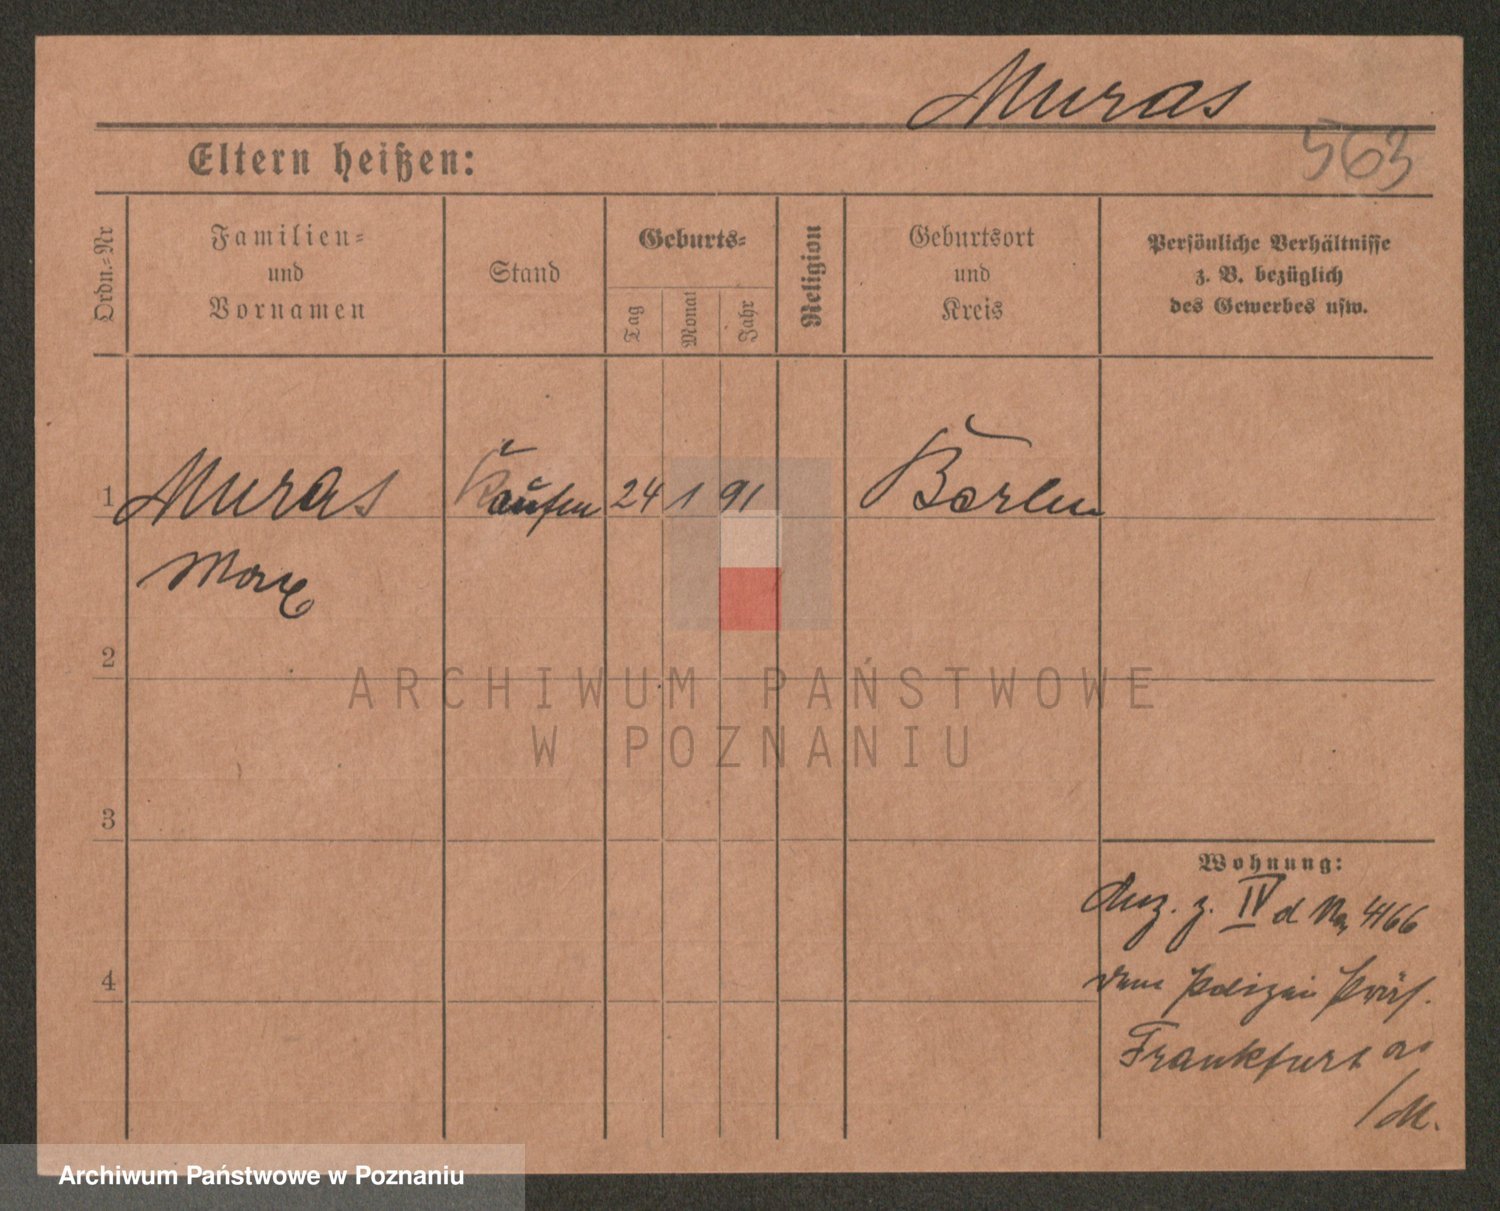 Muras
563
Eltern heißen:
Ordn.-Nr
Familien-
und
Vornamen
Stand
Geburts-
Tag
Monat
Jahr
Religion
Geburtsort
und
Kreis
Persönliche Verhältnisse
z. B. bezüglich
des Gewerbes usw.
1 Muras 24 1 91 Berlin
Max
2
ARCHIWUM PAŃSTWOWE
W POZNANIU
3
Wohnung:
z. IV d 4166
4
dem Polizei Präs.
Frankfurt a
/M.
Archiwum Państwowe w Poznaniu